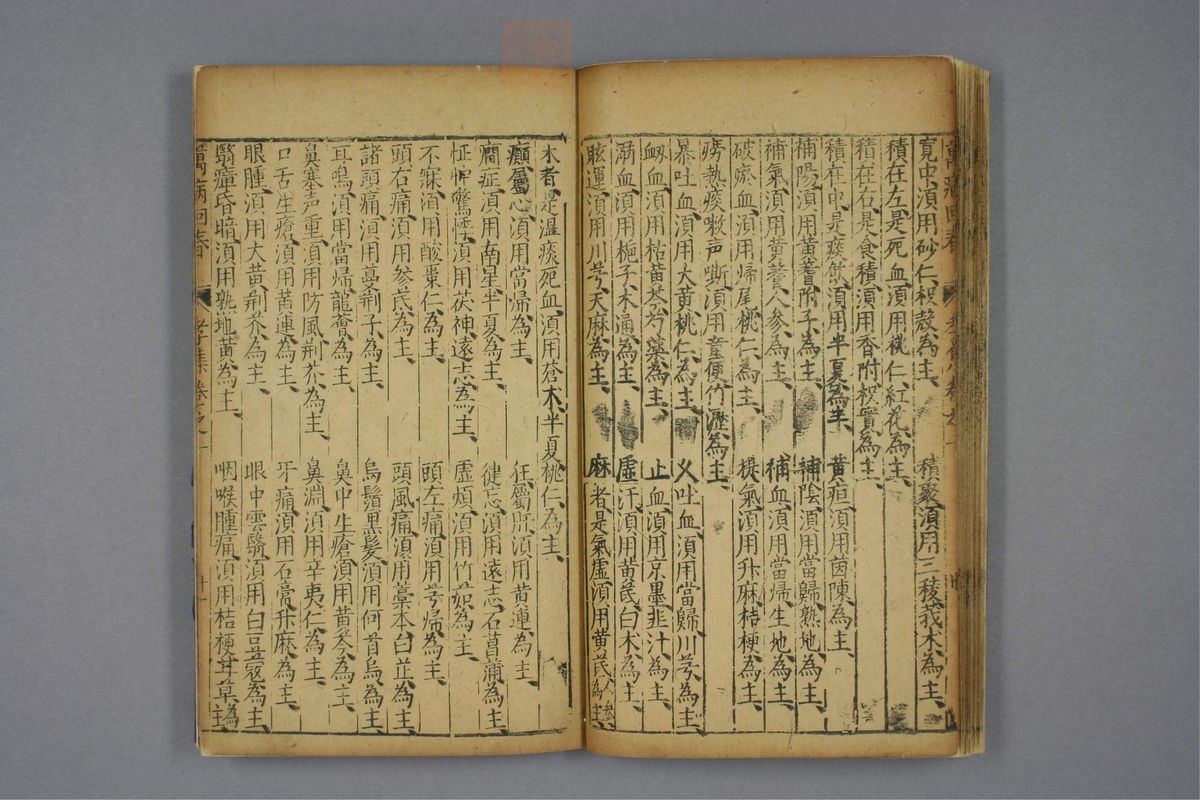 寬中須用砂仁枳殼為主、積聚須用三稜莪术為主、
積在左是死血、須用桃仁紅花為主、
積在右是食積、須用香附枳實為主、
積在中是痰飲、須用半夏為主、黄疸須用茵陳為主、
補陽須用黄耆附子為主、補陰須用當歸熟地為主、
補氣須用黄耆人參為主、補血須用當歸生地為主、
破瘀血須用歸尾桃仁為主、提氣須用升麻桔梗為主、
癆熱痰嗽声嘶、須用童便竹瀝為主、
暴吐血、須用大黄桃仁為主、久吐血、須用當歸川芎為主、
衂血須用枯黄芩芍藥為主、止血須用京墨韭汁為主、
溺血須用梔子木通為主、虚汗須用黄芪白术為主、
眩運須用川芎天麻為主、麻者是氣虚、須用黄芪人參為主、
木者是湿痰死血、須用蒼术半夏桃仁為主、
癲屬心、須用當歸為主、狂屬肝、須用黄連為主、
癇症須用南星半夏為主、徤忘須用遠志石菖蒲為主、
怔忡驚悸須用茯神遠志為主、虚煩須用竹茹為主、
不寐須用酸棗仁為主、頭左痛須用芎歸為主、
頭右痛須用參芪為主、頭風痛須用藁本白芷為主、
諸頭痛須用蔓荆子為主、烏鬚黒髮須用何首烏為主、
耳鳴須用當歸龍薈為主、鼻中生瘡須用黄芩為主、
鼻塞声重須用防風荆芥為主、鼻淵須用辛夷仁為主、
口舌生瘡須用黄連為主、牙痛須用石膏升麻為主、
眼腫須用大黄荆芥為主、眼中雲翳須用白豆蔻為主、
翳瘴昏暗須用熟地黄為主、咽喉腫痛須用桔梗甘草為主、
萬病回春